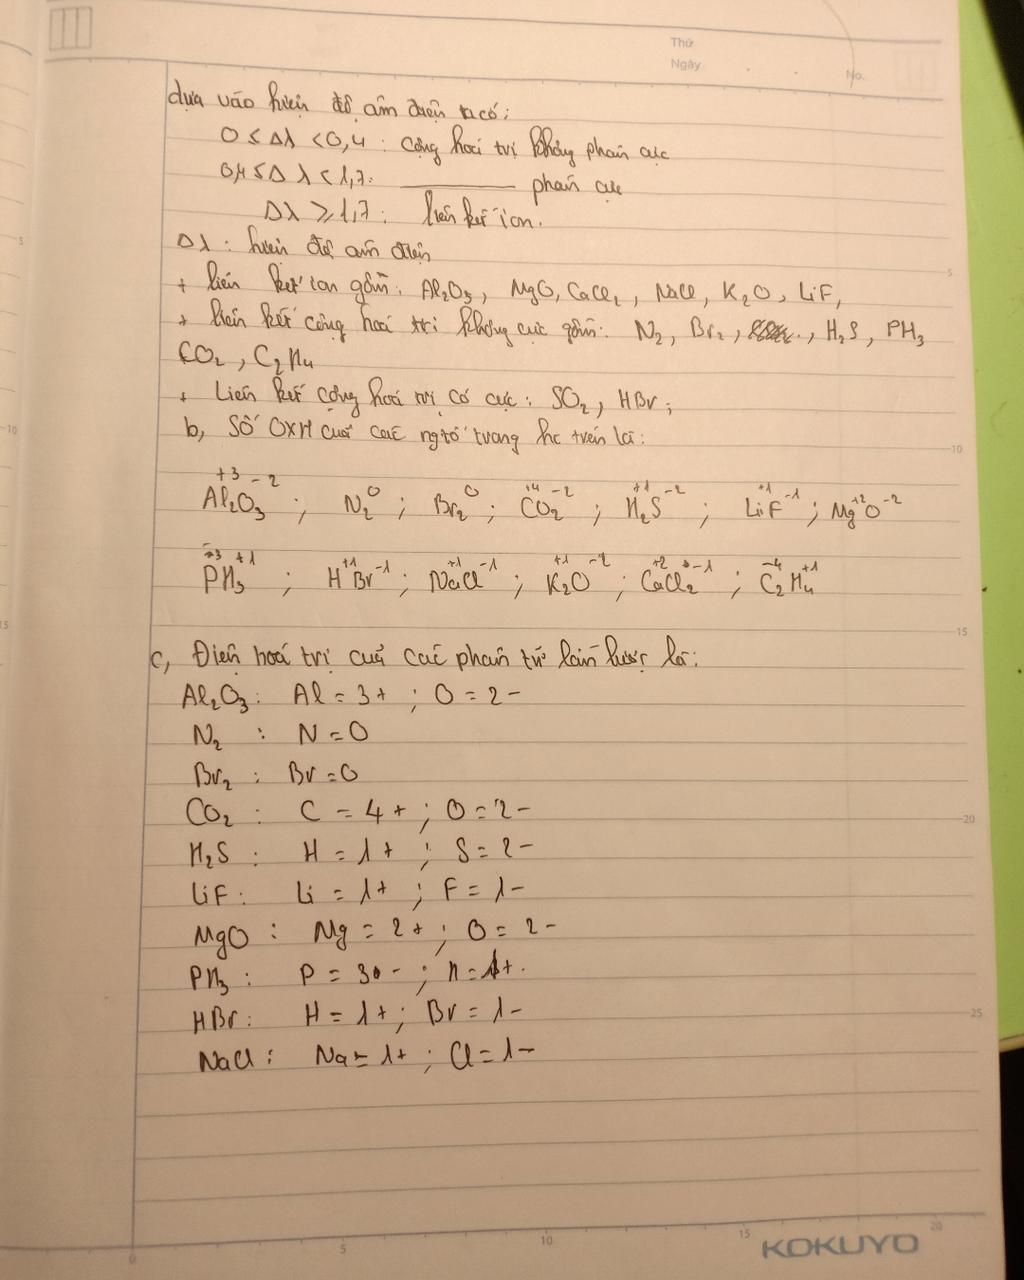 Thứ
Ngày
No.
dựa vào hiệu độ âm điện ta có:
0 ≤ Δλ < 0,4 : cộng hoá trị không phân cực
0,4 ≤ Δλ < 1,7: ———— phân cực
Δλ ≥ 1,7: liên kết ion.
Δλ : hiệu độ âm điện
+ liên kết ion gồm: Al₂O₃, MgO, CaCl₂, NaCl, K₂O, LiF,
+ liên kết cộng hoá trị không cực gồm: N₂, Br₂, , H₂S, PH₃
CO₂, C₂H₄
+ Liên kết cộng hoá trị có cực: SO₂, HBr;
b, Số OXH của các ngtố trong hc trên là:
+3 -2 0 0 +4 -2 +1 -2 +1 -1 +2 -2
Al₂O₃ ; N₂ ; Br₂ ; CO₂ ; H₂S ; LiF ; MgO
-3 +1 +1 -1 +1 -1 +1 -2 +2 -1 -4 +1
PH₃ ; HBr ; NaCl ; K₂O ; CaCl₂ ; C₂H₄
c, Điện hoá trị của các phân tử lần lược là:
Al₂O₃: Al = 3+ ; O = 2-
N₂ : N = 0
Br₂ : Br = 0
CO₂ : C = 4+ ; O = 2-
H₂S : H = 1+ ; S = 2-
LiF : Li = 1+ ; F = 1-
MgO : Mg = 2+ ; O = 2-
PH₃ : P = 3- ; H = 1+.
HBr : H = 1+ ; Br = 1-
NaCl : Na = 1+ ; Cl = 1-
KOKUYO